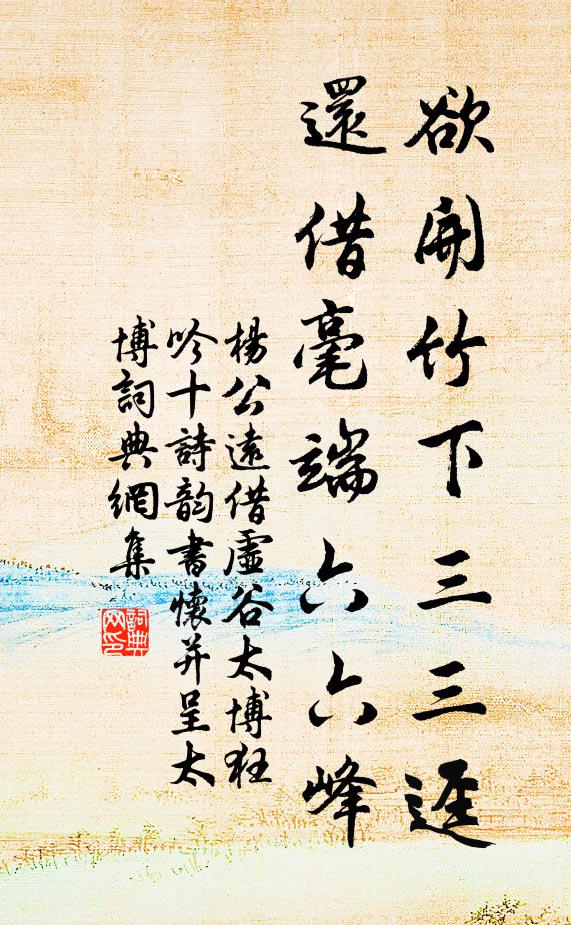 欲開竹下三三逕
還借毫端六六峰
楊公遠借虛谷太博狂
吟十詩韵書懷并呈太
博詞典網集
詞典網印